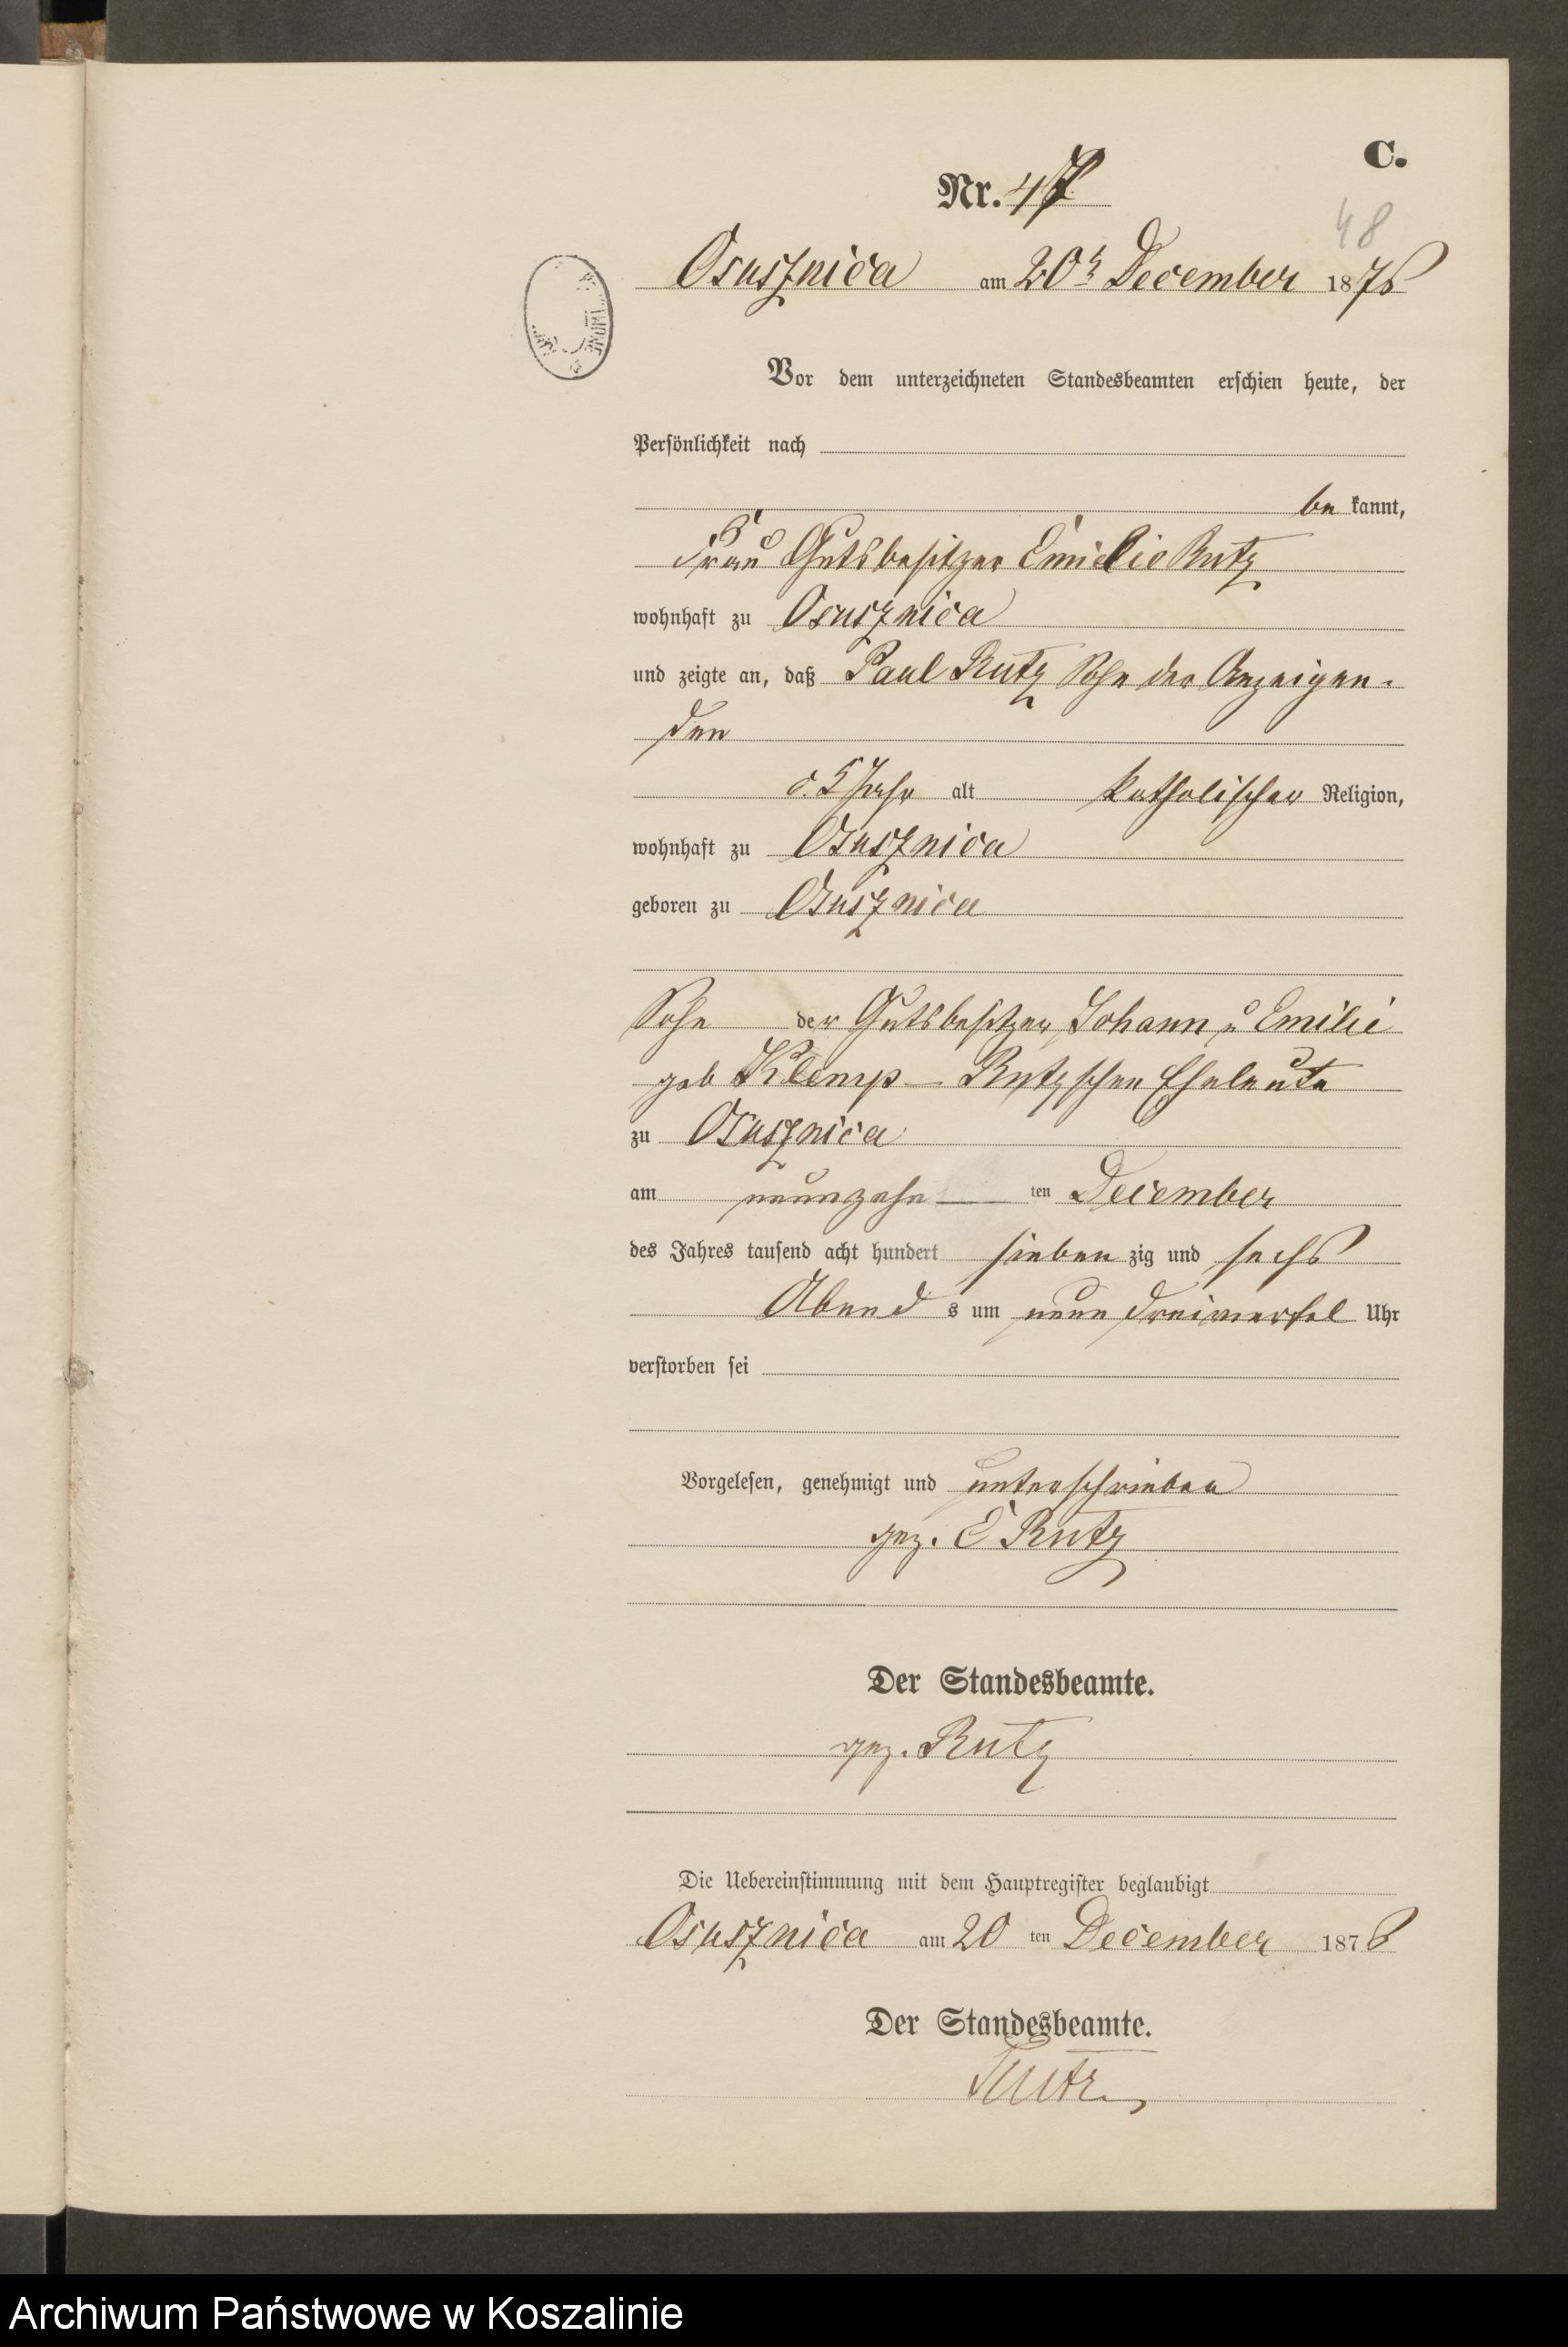 C.
Nr. 47
48
Osusznica am 20t December 1876
Vor dem unterzeichneten Standesbeamten erschien heute, der
Persönlichkeit nach
be kannt,
Frau Gutsbesitzer Emielie Rutz
wohnhaft zu Osusznica
und zeigte an, daß Paul Rutz Sohn der Anzeigen-
den
5 Jahr alt katholischer Religion,
wohnhaft zu Osusznica
geboren zu Osusznica
Sohn der Gutsbesitzer Johann u Emilie
geb Klemp – Rutzschen Eheleute
zu Osusznica
am neunzehn ten December
des Jahres tausend acht hundert sieben zig und sechs
Abend s um neun dreiviertel Uhr
verstorben sei
Vorgelesen, genehmigt und unterschrieben
gez. E Rutz
Der Standesbeamte.
gez. Rutz
Die Uebereinstimmung mit dem Hauptregister beglaubigt
Osusznica am 20 ten December 1876
Der Standesbeamte.
Rutz
Archiwum Państwowe w Koszalinie